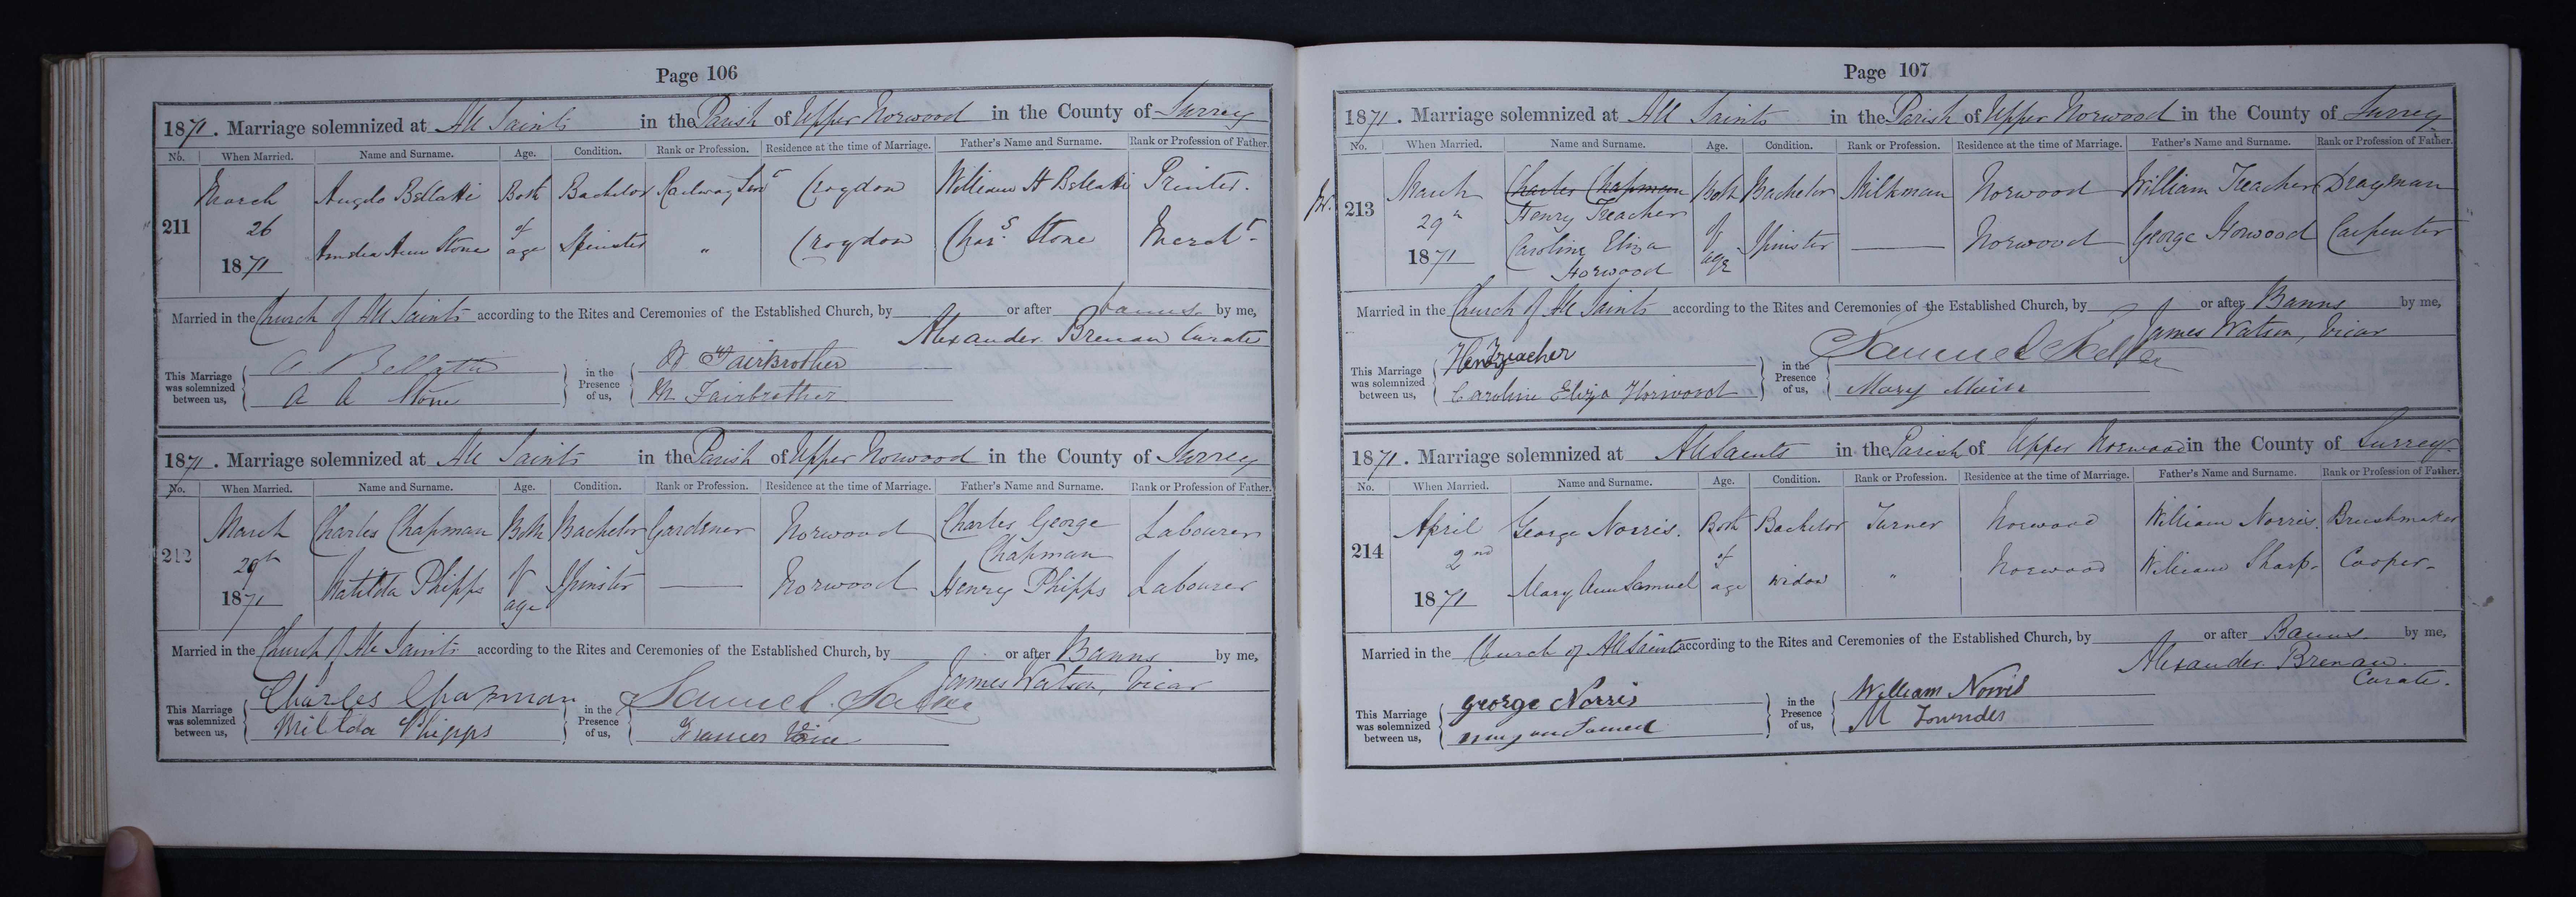 Page 106
1871. Marriage solemnized at All Saints in the Parish of Upper Norwood in the County of Surrey
No. When Married. Name and Surname. Age. Condition. Rank or Profession. Residence at the time of Marriage. Father's Name and Surname. Rank or Profession of Father.
March Angelo Bellatti Both Bachelor Railway Servt Croydon William H Bellatti Printer.
211 26 of
1871 Amelia Ann Stone age Spinster " Croydon Chas. Stone Mercht.
Married in the Church of All Saints according to the Rites and Ceremonies of the Established Church, by or after banns by me,
Alexander Brenan Curate
This Marriage was solemnized between us, A Bellatti in the Presence of us, Fairbrother
A A Stone M Fairbrother
1871. Marriage solemnized at All Saints in the Parish of Upper Norwood in the County of Surrey
No. When Married. Name and Surname. Age. Condition. Rank or Profession. Residence at the time of Marriage. Father's Name and Surname. Rank or Profession of Father.
March Charles Chapman Both Bachelor Gardener Norwood Charles George Chapman Labourer
212 29th of
1871 Matilda Phipps age Spinster — Norwood Henry Phipps Labourer
Married in the Church of All Saints according to the Rites and Ceremonies of the Established Church, by or after Banns by me,
James Watson, Vicar
This Marriage was solemnized between us, Charles Chapman in the Presence of us, Samuel
Matilda Phipps Frances
Page 107
1871. Marriage solemnized at All Saints in the Parish of Upper Norwood in the County of Surrey
No. When Married. Name and Surname. Age. Condition. Rank or Profession. Residence at the time of Marriage. Father's Name and Surname. Rank or Profession of Father.
March Charles Chapman Both Bachelor Milkman Norwood William Treacher Drayman
213 29th Henry Treacher of
1871 Caroline Eliza Horwood age Spinster — Norwood George Horwood Carpenter
Married in the Church of All Saints according to the Rites and Ceremonies of the Established Church, by or after Banns by me,
James Watson, Vicar
This Marriage was solemnized between us, Henry Treacher in the Presence of us, Samuel
Caroline Eliza Horwood Mary
1871. Marriage solemnized at All Saints in the Parish of Upper Norwood in the County of Surrey
No. When Married. Name and Surname. Age. Condition. Rank or Profession. Residence at the time of Marriage. Father's Name and Surname. Rank or Profession of Father.
April George Norris. Both Bachelor Turner Norwood William Norris. Brushmaker
214 2nd of
1871 Mary Ann Samuel age Widow " Norwood William Sharp. Cooper.
Married in the Church of All Saints according to the Rites and Ceremonies of the Established Church, by or after Banns by me,
Alexander Brenan. Curate.
This Marriage was solemnized between us, George Norris in the Presence of us, William Norris
mary ann Samuel M Lowndes